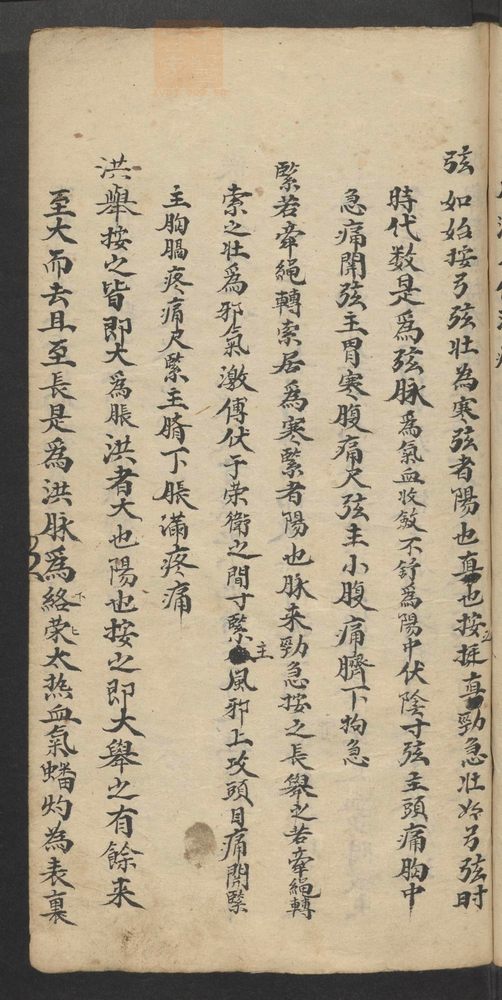 弦如始按弓弦壯為寒弦者陽也真也按捱真勁急壯如弓弦時
時代数是爲弦脉爲氣血收斂不舒爲陽中伏陰寸弦主頭痛胸中
急痛関弦主胃寒腹痛尺弦主小腹痛臍下拘急
緊若牽繩轉索居爲寒緊者陽也脉来勁急按之長舉之若牽繩轉
索之壯爲邪氣激傅伏于荣衛之間寸緊主風邪上攻頭目痛関緊
主胸膈疼痛尺緊主臍下脹滿疼痛
洪舉按之皆即大爲脹洪者大也陽也按之即大舉之有餘来
至大而去且至長是爲洪脉爲絡荣太热血氣蟠灼為表裏